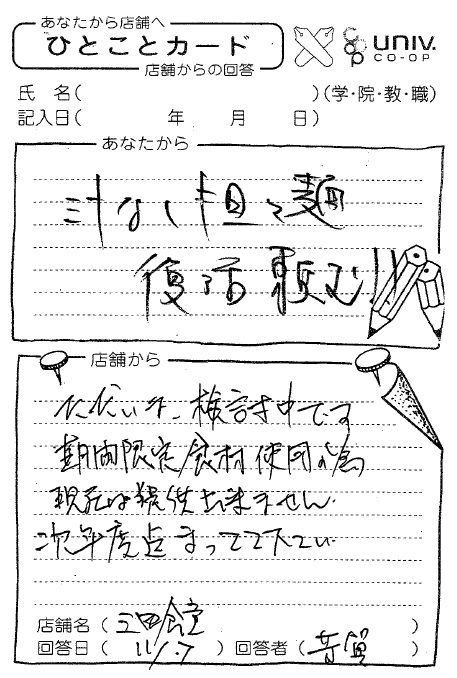 あなたから店舗へ
ひとことカード
店舗からの回答
UNIV.
CO-OP
氏 名( )(学・院・教・職)
記入日( 年 月 日)
あなたから
汁なし担々麺
復活頼む!!
店舗から
検討中です
期間限定食材使用の為
現在は提供出来ません
次年度まで待って下さい
店舗名( 食堂 )
回答日( 11/17 )回答者( )